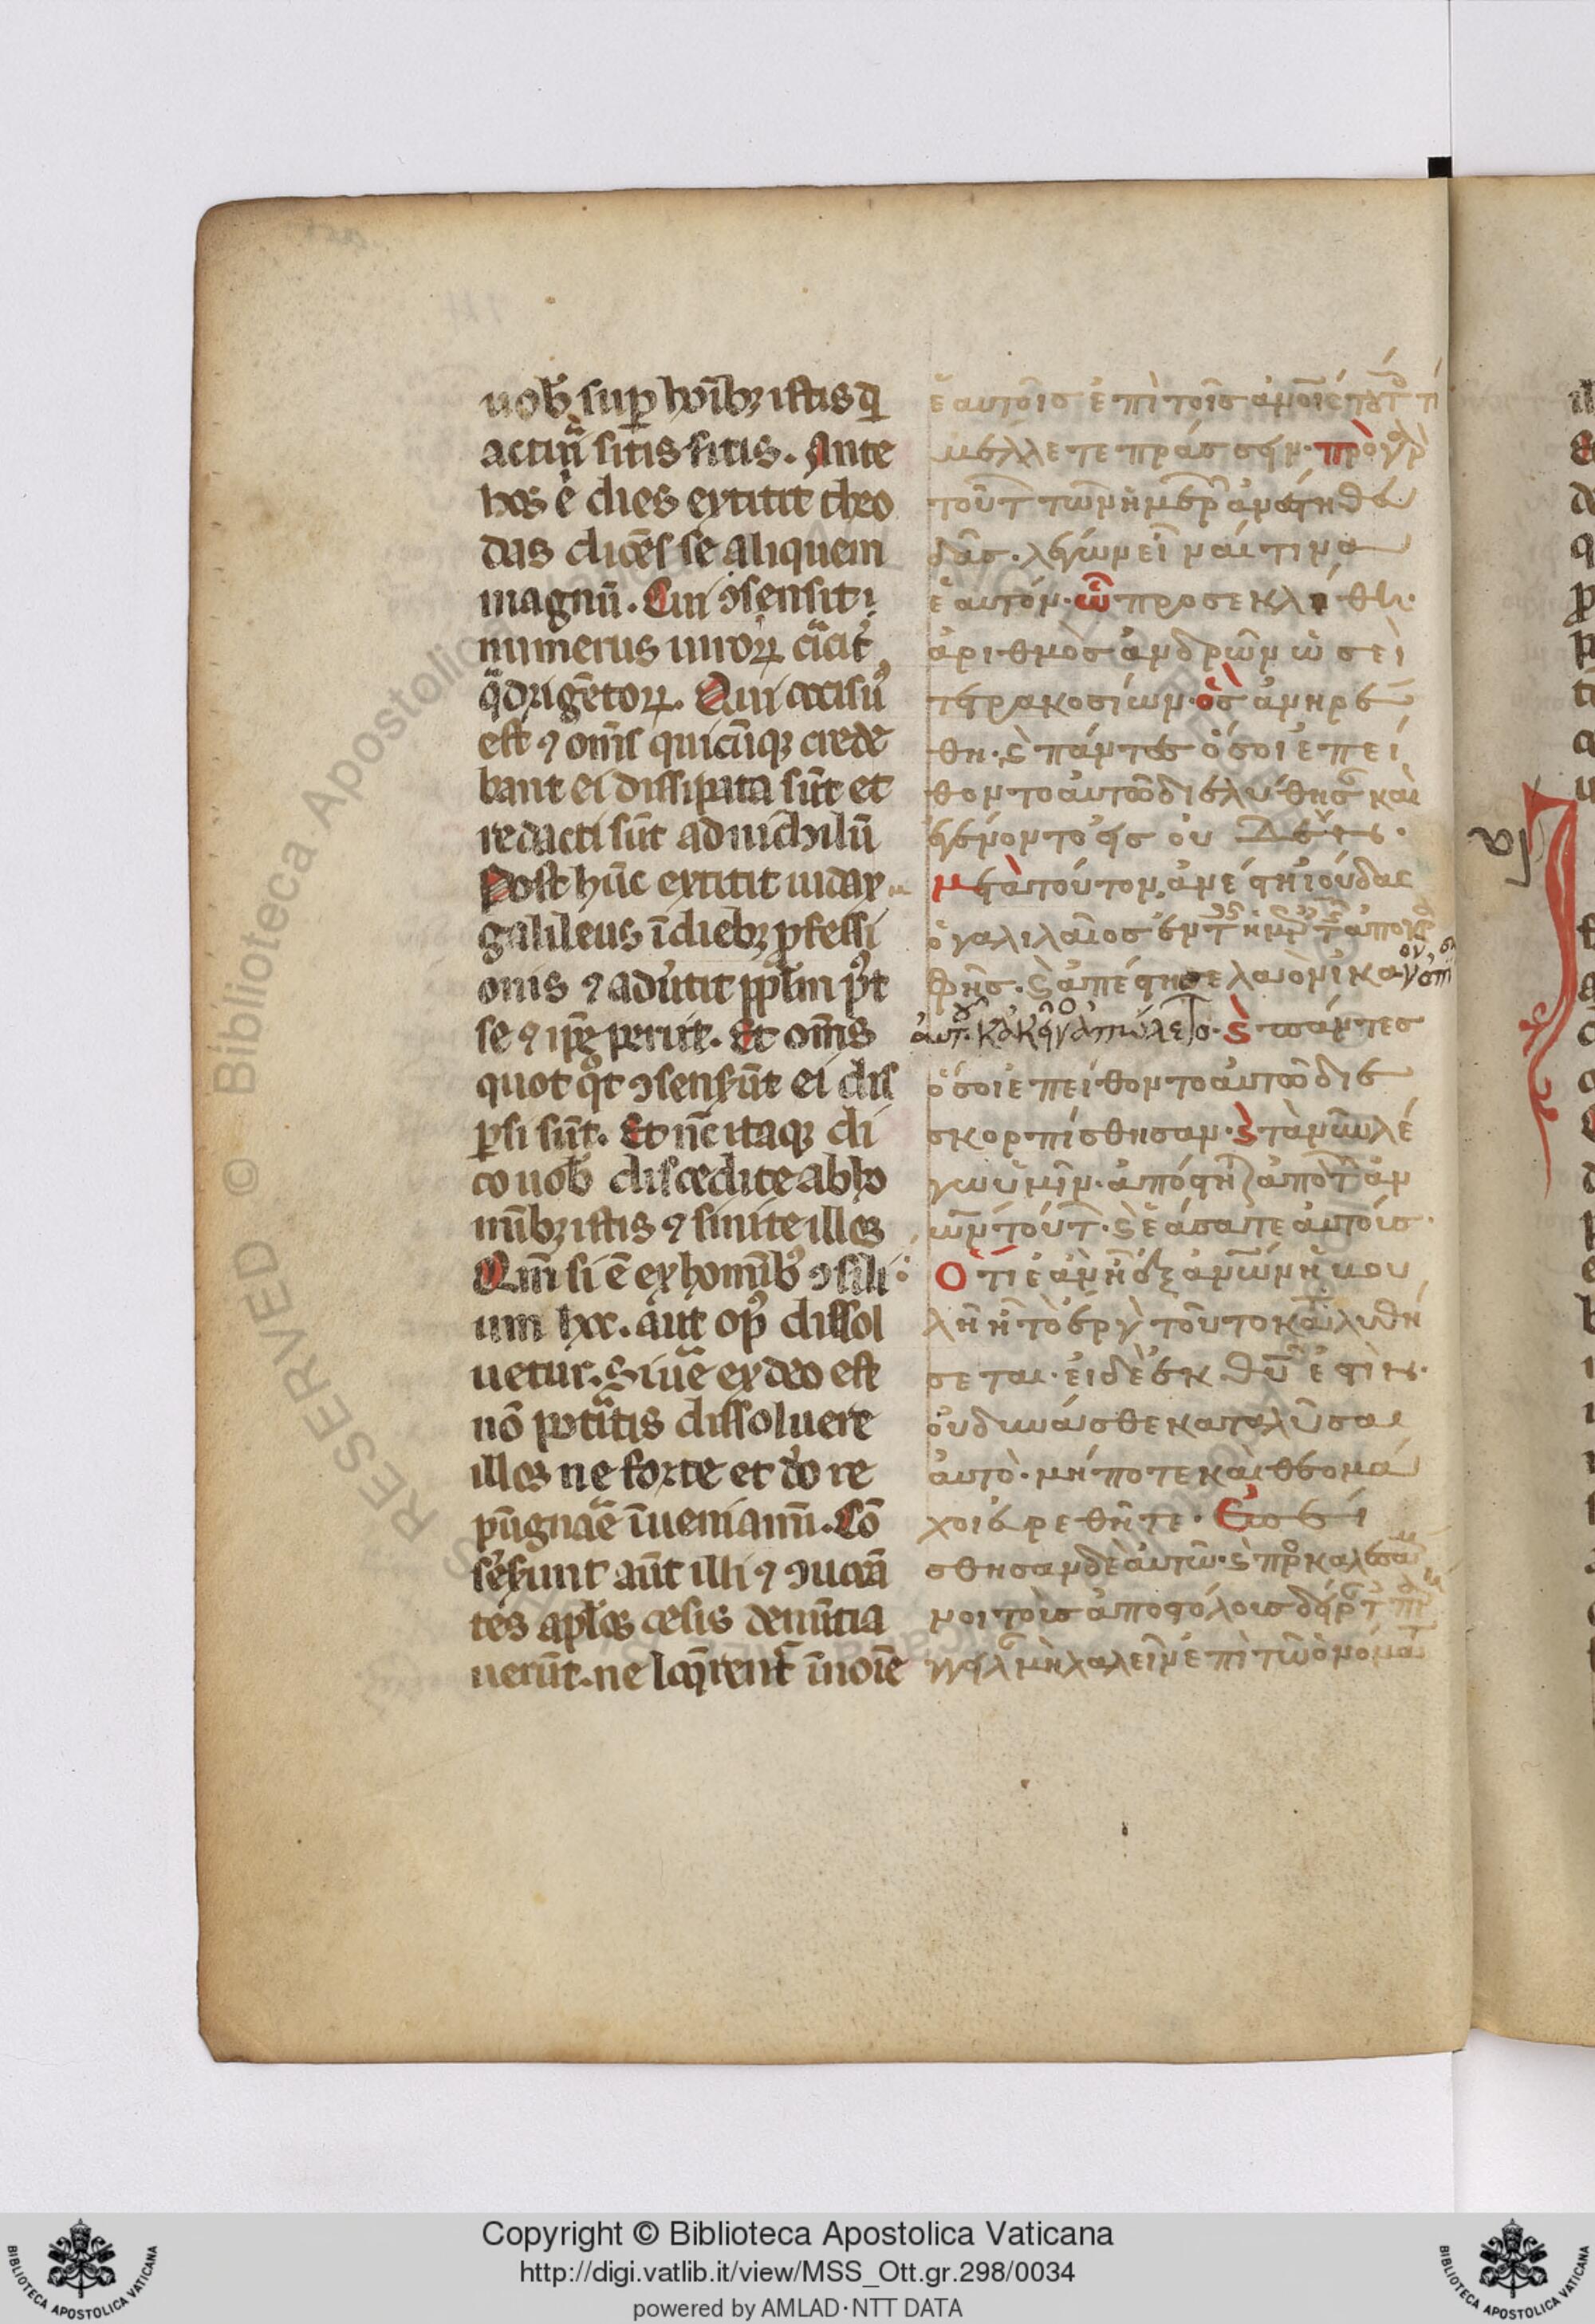 uob̄ sup̱ hoı̄bꝫ istis q̇
acturi sitis sitis. Ante
hos ē dies extitit theo
das dicēs se aliquem
magnū. Cui ꝯsensit
numerus uiroꝝ circit᷒
q̈drigētoꝝ. Qui occisu᷒
est ⁊ om̄s quicūqꝫ crede
bant ei dissipata sūt et
redacti sūt ad nichilū
Post hūc extitit iudax
galileus ı̄ diebꝫ ꝓfessi
onis ⁊ adu̓tit pplm̄ pꝰt
se ⁊ ip̄e periit. Et om̄s
quot q̊t ꝯsenserūt ei dis
ꝑsi sūt. Et nc̄ itaqꝫ di
co uob̄ discedite ab ho
nūbꝫ istis ⁊ sinite illos
Qm̄ si ē ex hominibꝰ ꝯsili
um hoc. aut opꝰ dissol
uetur. Si ue᷒ ex deo est
nō pot̓itis dissoluere
illos ne forte et do re
pūgnāe ı̄ueniamı̄. Cō
sēserunt aūt illi ⁊ ꝯuocā
tes apl̄os cesis denūtia
uerūt. ne loq̄rent᷒ ı̄ noīe
ἑαυτοῖς ἐπὶ τοῖς ἀνοις τουτ τί
μέλλετε πράσσειν· πρὸ γὰρ
τουτ τῶν ἡμερ ἀνέστη θευ
δᾶς· λέγων εἶναί τινα
ἑαυτόν· ὧ προσεκλήθη·
ἀριθμὸς ἀνδρῶν ὡσεὶ
τετρακοσίων· ὃς ἀνηρέ
θη· ϗ πάντες ὅσοι ἐπεί
θοντο αὐτῶ διελύθησ καὶ
ἐγένοντο εἰς οὐ
μετὰ τοῦτον ἀνέστη ἰούδας
ὁ γαλιλαῖος ἐν τ ἡμρ τ ἀπογρ
φῆς· ϗ ἀπέστησε λαὸν ἱκανον
αὐτ. κἀκεῖνος ἀπώλετο· ϗ πάντες
ὅσοι ἐπείθοντο αὐτῶ διε
σκορπίσθησαν· ϗ τὰ νῦν λέ
γω ὑμῖν· ἀπόστητε ἀπὸ τ ἀν
ων τούτ· ϗ ἐάσατε αὐτούς·
Ὅτι ἐὰν ἦ ἐξ ἀνων ἡ βου
λὴ ἢ τὸ ἔργ τοῦτο καταλυθή
σεται· εἰ δὲ ἐκ θυ ἐστιν·
οὐ δύνασθε καταλῦσαι
αὐτὸ· μήποτε καὶ θεομά
χοι εὑρεθῆτε· Ἐπεί
σθησαν δὲ αὐτῶ· ϗ προσκαλεσάμε
νοι τοὺς ἀποστόλους δείρ
γειλ μὴ λαλεῖν ἐπὶ τῶ ὀνόματ
υſ
Copyright © Biblioteca Apostolica Vaticana
http://digi.vatlib.it/view/MSS_Ott.gr.298/0034
powered by AMLAD·NTT DATA
BIBLIOTECA APOSTOLICA VATICANA
BIBLIOTECA APOSTOLICA VATICANA